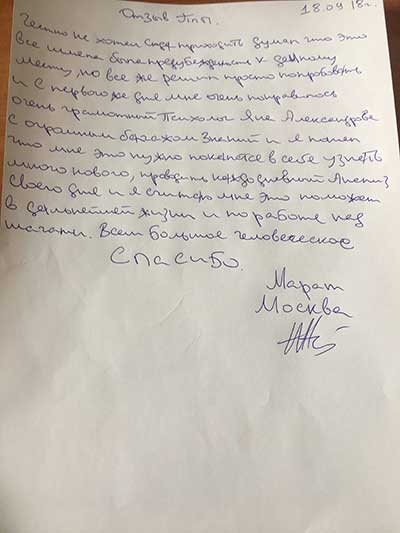 Отзыв ГПП. 18.09 18г.
Честно не хотел сюда приходить думал что это
все имела была предубежденность к данному
месту, но все же решил просто попробовать
и с первого же дня мне очень понравилось
очень грамотный Психолог Яна Александровна
с огромным багажом знаний и я понял
что мне это нужно покопатся в себе узнать
много нового, проводить каждодневный Анализ
своего дня и я считаю мне это поможет
в дальнейшей жизни и по работе над
шагами. Всем большое человеческое
Спасибо.
Марат
Москва